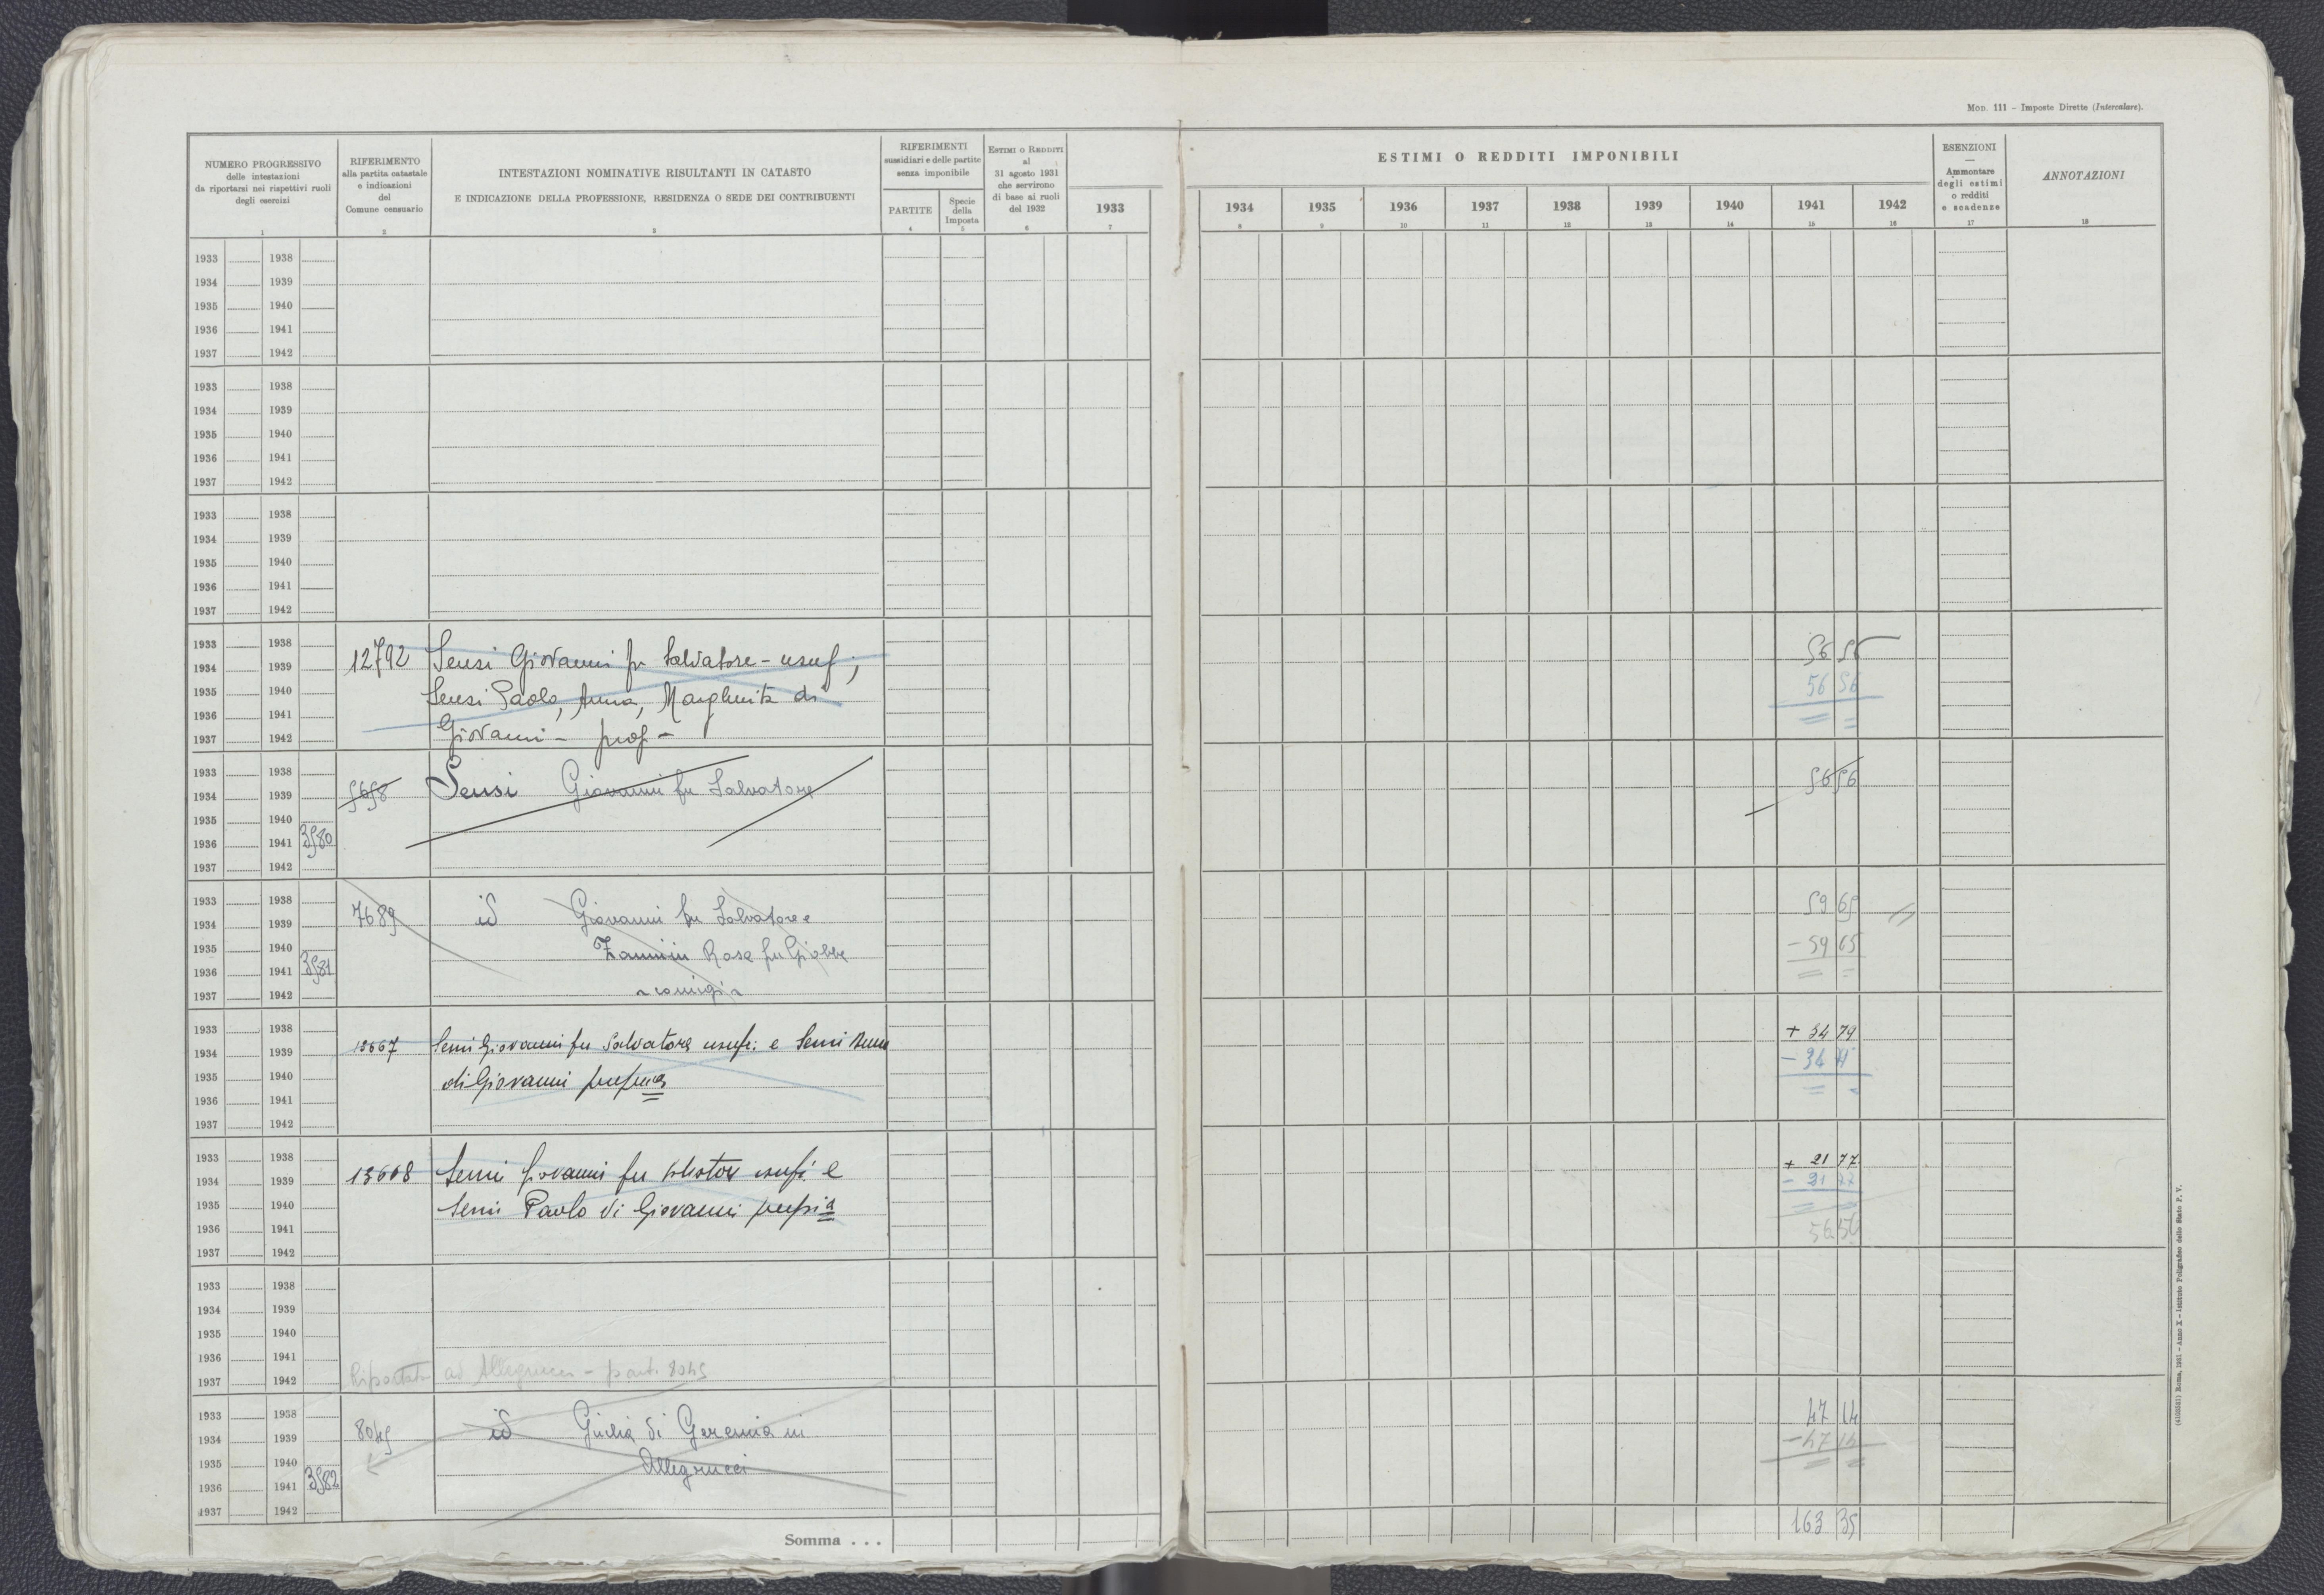 MOD. 111 - Imposte Dirette (Intercalare).
NUMERO PROGRESSIVO
delle intestazioni
da riportarsi nei rispettivi ruoli
degli esercizi
1
RIFERIMENTO
alla partita catastale
e indicazioni
del
Comune censuario
2
INTESTAZIONI NOMINATIVE RISULTANTI IN CATASTO
E INDICAZIONE DELLA PROFESSIONE, RESIDENZA O SEDE DEI CONTRIBUENTI
3
RIFERIMENTI
sussidiari e delle partite
senza imponibile
PARTITE
4
Specie
della
Imposta
5
ESTIMI O REDDITI
al
31 agosto 1931
che servirono
di base ai ruoli
del 1932
6
ESTIMI O REDDITI IMPONIBILI
1933 1934 1935 1936 1937 1938 1939 1940 1941 1942
7 8 9 10 11 12 13 14 15 16
ESENZIONI
—
Ammontare
degli estimi
o redditi
e scadenze
17
ANNOTAZIONI
18
1933 1938
1934 1939
1935 1940
1936 1941
1937 1942
1933 1938
1934 1939
1935 1940
1936 1941
1937 1942
1933 1938
1934 1939
1935 1940
1936 1941
1937 1942
1933 1938
1934 1939 12792 Sensi Giovanni fu Salvatore - usuf; 56 56
1935 1940 Sensi Paolo, Anna, Margherita di 56 56
1936 1941
1937 1942 Giovanni - prop -
1933 1938
1934 1939 5658 Sensi Giovanni fu Salvatore 56 56
1935 1940
1936 1941 3580
1937 1942
1933 1938
1934 1939 7689 id Giovanni fu Salvatore e 59 65
1935 1940 Zannini Rosa fu Giobbe - 59 65
1936 1941 3581
1937 1942 - coniugi -
1933 1938 + 34 79
1934 1939 13667 Sensi Giovanni fu Salvatore usufr: e Sensi Anna - 34
1935 1940 di Giovanni
1936 1941
1937 1942
1933 1938 + 21 77
1934 1939 13668 Sensi Giovanni fu usufr. e - 21 77
1935 1940 Sensi Paolo di Giovanni
1936 1941 56 56
1937 1942
1933 1938
1934 1939
1935 1940
1936 1941
1937 1942 Riportata ad Allegrucci - part. 8045
1933 1938 47 14
1934 1939 8045 id Giulia di Geremia in - 47 14
1935 1940 Allegrucci
1936 1941 3582
1937 1942
Somma . . . 163 35
(4103551) Roma, 1931 - Anno X - Istituto Poligrafico dello Stato P. V.